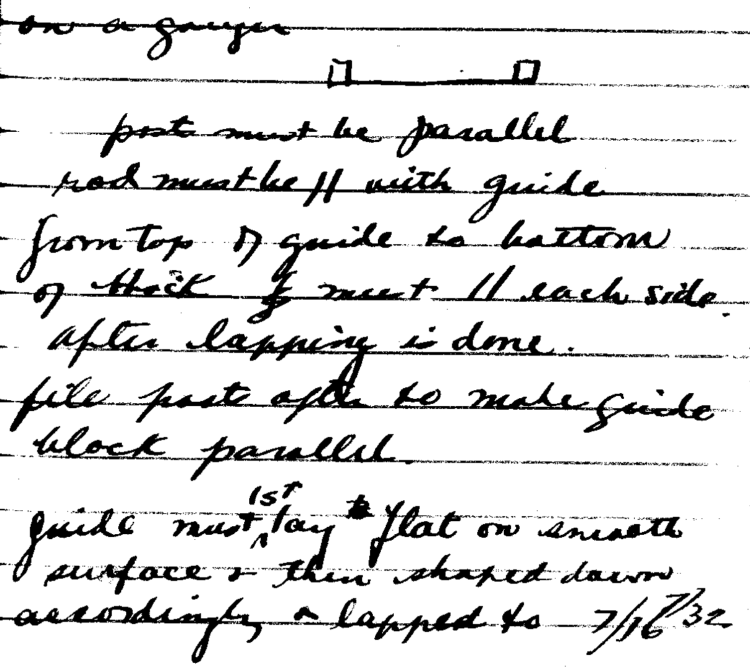 on a gauge
post must be parallel
rod must be // with guide
from top of guide to bottom
of block must // each side.
after lapping is done.
file post after to make guide
block parallel.
1st
guide must lay flat on smooth
surface & then shaped down
accordingly & lapped to 7/16 7/32